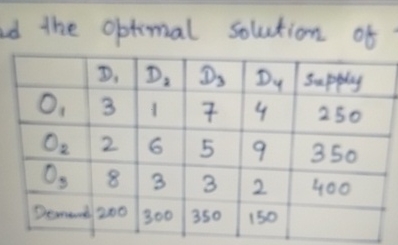 the optimal solution of
D₁ D₂ D₃ D₄ Supply
O₁ 3 1 7 4 250
O₂ 2 6 5 9 350
O₃ 8 3 3 2 400
Demand 200 300 350 150